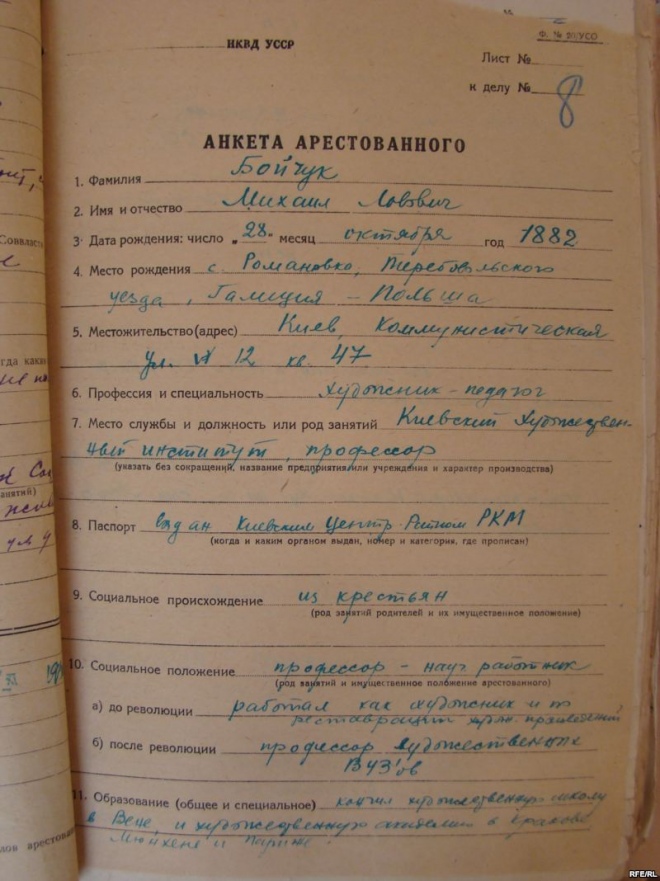 №
Ф. № 20/УСО
НКВД УССР
Лист №
к делу № 8
АНКЕТА АРЕСТОВАННОГО
1. Фамилия Бойчук
2. Имя и отчество Михаил Львович
3. Дата рождения: число „28“ месяц октября год 1882
4. Место рождения с. Романовко, Теребовльского
уезда, Галиция - Польша
5. Местожительство (адрес) Киев, Коммунистическая
ул. № 12 кв. 47
6. Профессия и специальность художник - педагог
7. Место службы и должность или род занятий Киевский художествен-
ный институт, профессор
(указать без сокращений, название предприятия или учреждения и характер производства)
8. Паспорт выдан Киевским Центр. РКМ
(когда и каким органом выдан, номер и категория, где прописан)
9. Социальное происхождение из крестьян
(род занятий родителей и их имущественное положение)
10. Социальное положение профессор - науч. работник
(род занятий и имущественное положение арестованного)
а) до революции работал как художник и по
реставрации худож. произведений
б) после революции профессор художественных
ВУЗ'ов
11. Образование (общее и специальное) кончил художественную школу
в Вене, и художественную академию в Кракове
Мюнхене и Париже.
Соввласт
гда како
занятий)
лов арестован
RFE/RL